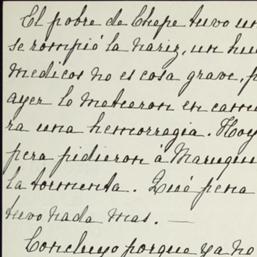 El pobre de Chepe tuvo un
se rompió la nariz, un hue
medicos no es cosa grave, p
ayer lo metieron en cama
ra una hemorragia. Hoy
pera pidieron á Maruqui
la tormenta. Qué pena
tuvo nada mas. —
Concluyo porque ya no